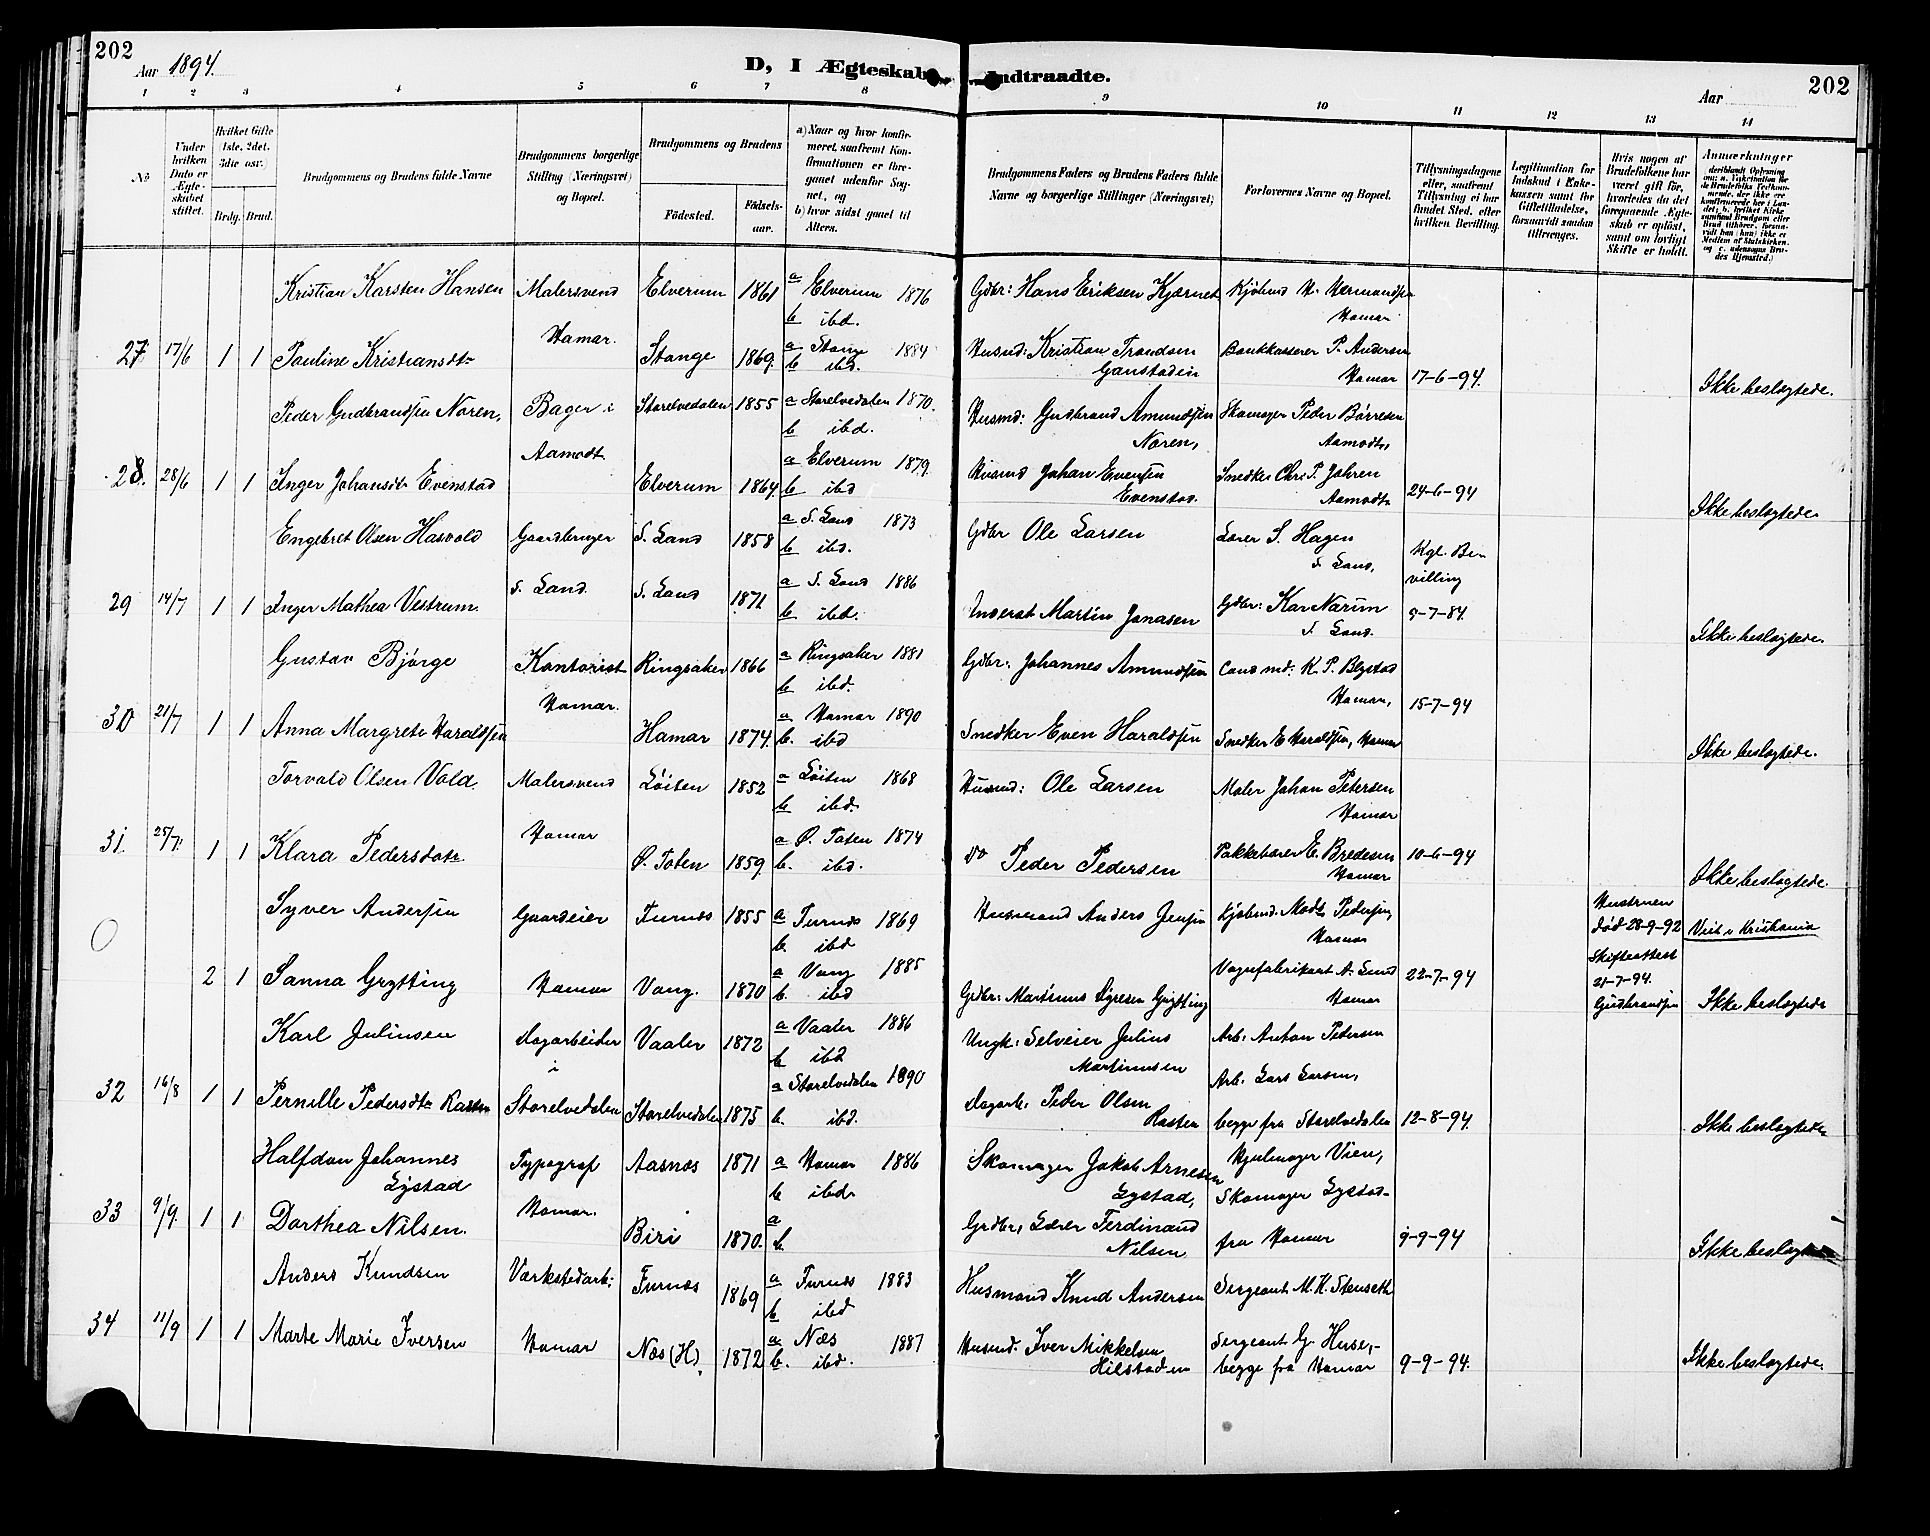 202
Aar 1894.
D, I Ægteskab Indtraadte.
Aar
202
1 2 3 4 5 6 7 8 9 10 11 12 13 14
No
Under hvilken Dato er Ægteskabet stiftet.
Hvilket Gifte 1ste. 2det. 3die osv.
Brdg. Brud.
Brudgommens og Brudens fulde Navne
Brudgommens borgerlige Stilling (Næringsvei) og Bopæl.
Brudgommens og Brudens
Fødested.
Fødselsaar.
a) Naar og hvor konfirmeret, saafremt Konfirmationen er foregaaet udenfor Sognet, og
b) hvor sidst gaaet til Alters.
Brudgommens Faders og Brudens Faders fulde Navne og borgerlige Stillinger (Næringsvei)
Forlovernes Navne og Bopæl.
Tillysningsdagene eller, saafremt Tillysning ei har fundet Sted, efter hvilken Bevilling.
Legitimation for Indskud i Enkekassen samt for Giftetilladelse, forsaavidt saadan tiltrænges.
Hvis nogen af Brudefolkene har været gift før, hvorledes da det foregaaende Ægteskab er opløst, samt om lovligt Skifte er holdt.
Anmærkninger
Kristian Karsten Hansen Malersvend Elverum 1861 a Elverum 1876 Gdbr: Hans Eriksen Kjærnet Kjøbmd H. Hermandsen
b ibd. Hamar
27. 17/6 1 1 Pauline Kristiansdtr Hamar. Stange 1869. a Stange 1884 Husmd: Kristian Trondsen Bankkasserer P. Andersen
b ibd. Ganstadin Hamar 17-6-94. Ikke beslægtede.
Peder Gudbrandsen Noren, Bager i Storelvedalen 1855 a Storelvedalen 1870. Husmd: Gudbrand Amundsen Skomager Peder Börresen
Aamodt b ibd. Noren, Aamodt,
28. 28/6 1 1 Inger Johansdtr Evenstad Elverum 1864 a Elverum 1879. Husmd Johan Evensen Snedker Chr. P. Jahren
b ibd Evenstad. Aamodt 24-6-94 Ikke beslægtede
Engebret Olsen Hasvold Gaardbruger S. Land 1858 a S. Land 1873 Gdbr Ole Larsen Lærer S. Hagen
b ibd. S. Land, Kgl. Bevilling
29 14/7 1 1 Inger Mathea Vestrum. S. Land. S. Land 1871 a S. Land 1886 Martin Jonasen Gdbr: Kar Narum 5-7-84.
b ibd. S. Land. Ikke beslægtede.
Gustav Bjørge Kontorist Ringsaker 1866 a Ringsaker 1881 Gdbr: Johannes Amundsen Cand md: K. P. Blystad
b ibd. Hamar, 15-7-94
30 21/7 1 1 Anna Margrete Haraldsen Hamar. Hamar 1874. a Hamar 1890 Snedker Even Haraldsen Snedker E Haraldsen, Hamar
b. ibd Ikke beslægtede.
Torvald Olsen Vold. Malersvend Løiten 1852 a Løiten 1868 Husmd: Ole Larsen Maler Johan Petersen
b ibd. Hamar
31. 25/7. 1 1 Klara Pedersdatr. Hamar Ø. Toten 1859. a Ø. Toten 1874 do Peder Pedersen Pakkebærer E. Bredesen 10-6-94
b. ibd. Hamar Ikke beslægtede.
Syver Andersen Gaardeier Furnæs 1855 a Furnæs 1869 Husmand Anders Jensen Kjøbmd. Mads Pedersen, Hustruen død 28-9-92 Viet i Kristiania
b. ibd Hamar Skifteattest 21-7-94.
2 1 Sanna Grytting Hamar Vang. 1870 a Vang 1885 Gdbr: Martinus Syversen Grytting Vognfabrikant A. Lund 22-7-94 Gudbrandsen
b. ibd Hamar Ikke beslægtede
Karl Juliusen Dagarbeider i Vaaler 1872 a Vaaler 1886 Ungk: Selveier Julius Arb: Anton Pedersen
b ibd Martinusen
32 16/8 1 1 Pernille Pedersdtr Rasten Storelvedalen Storelvedalen 1875 a Storelvedalen 1890 Dagarb: Peder Olsen Arb. Lars Larsen,
b. ibd. Rasten begge fra Storelvedalen 12-8-94. Ikke beslægtede.
Halfdan Johannes Typograf Aasnæs 1871 a Hamar 1886 Skomager Jakob Arnesen Hjulmager Vien,
Lystad b ibd. Lystad, Skomager Lystad
33 9/9. 1 1 Dorthea Nilsen. Hamar. Biri 1870. a Grdbr, Lærer Ferdinand fra Hamar 9-9-94
b. Nilsen Ikke beslægtede
Anders Knudsen Værkstedarb: Furnæs 1869 a Furnæs 1883 Husmand Knud Andersen Sergeant M. K. Stenseth
b ibd
34 11/9 1 1 Marte Marie Iversen Hamar Næs (H), 1872 a Næs 1887 Husmd. Iver Mikkelsen Sergeant G. Huse,-
b. ibd. Hilstaden begge fra Hamar 9-9-94. Ikke beslægtede.